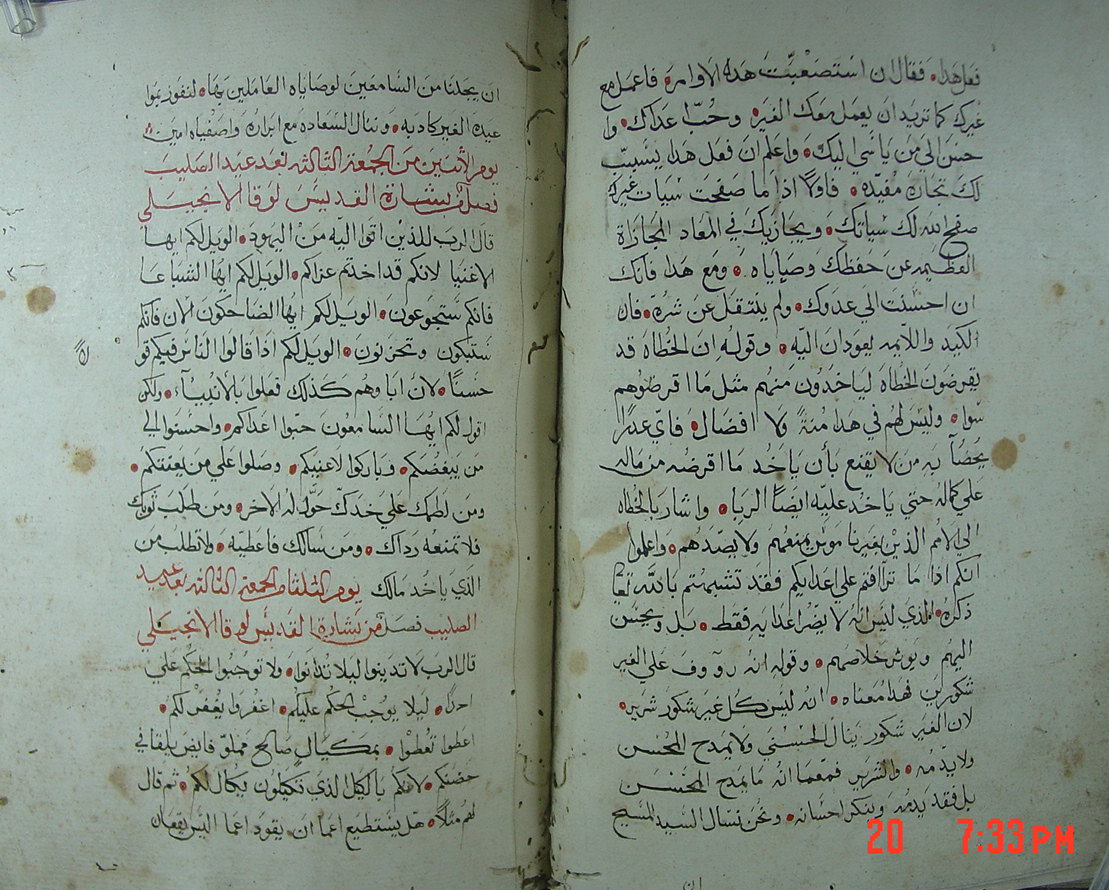 فعل هذا. فقال ان استصعبت هده الاوامر. فاعمل مع
غيرك كما تريد ان يعمل معك الغير. وحب عداك. وا
حسن الى من ياسي اليك. واعلم ان فعل هدا يسبب
لك تجارة مفيده. فاولاً اذا ما صفحت سيات غيرك
صفح الله لك سياتك. ويجازيك في المعاد المجازاة
العظيمه عن حفظك وصاياه. ومع هدا فانك
ان احسنت الي عدوك. ولم ينتقل عن شرة. فان
الكيد واللايمه يعودان اليه. وقوله ان الخطاه قد
يقرضون الخطاه لياخدون منهم مثل ما اقرضوهم
سوا. وليس لهم في هدا منة ولا افضال. فاي عدر
يحضا به من لا يقنع بأن ياخد ما اقرضه من ماله
علي كماله حتي ياخد عليه ايضاً الربا. واشار بالخطاه
الي الامم الذين بغيرنا موثر منعهم ولا يصدهم. واعلموا
انكم اذا ما ترافتم علي اعدايكم فقد تشبهتم بالله تعا
ذكره. الذي ليس انه لا يضر اعدايه فقط. بل ويحسن
اليهم ويوثر خلاصهم. وقوله انه رووف علي الغير
شكورين فهدا معناه. انه ليس كل غير شكور شرير.
لان الغير شكور ينال الحسني ولا يمدح المحسن
ولا يدمه. والشرير فمعما انه ما يمدح المحسن
بل فقد يدمه وينكر احسانه. ونحن نسال السيد المسيح
ان يجعلنا من السامعين لوصاياه العاملين بها. لنفوز بموا
عيده الغير كادبه. وننال السعاده مع ابراره واصفياه امين.
يوم الاتنين من الجمعة التالته بعد عيد الصليب
فصل من بشارة القديس لوقا الانجيلي
قال الرب للذين اتوا اليه من اليهود. الويل لكم ايها
الاغنيا لانكم قد اخدتم عزاكم. الويل لكم ايها الشباعا
فانكم ستجوعون. الويل لكم ايها الضاحكون الان فانكم
ستبكون وتحزنون. الويل لكم اذا قالوا الناس فيكم قو
حسناً. لان اباوهم كذلك فعلوا بالانبيآء. ولكن
اقول لكم ايها السامعون حبوا اعداكم. واحسنوا الي
من يبغضكم. وباركوا لاعنيكم. وصلوا علي من يعنتكم.
ومن لطمك علي خدك حول له الاخر. ومن طلب ثوبك
فلا تمنعه رداك. ومن سالك فاعطيه. ولا تطلب من
الذي ياخد مالك يوم التلتا من الجمعة التالته بعد عيد
الصليب فصل من بشارة القديس لوقا الانجيلي
قال الرب لا تدينوا ليلا تدانوا. ولا توجبوا الحكم علي
احد. ليلا يوجب الحكم عليكم. اغفروا يغفر لكم.
اعطوا تعطوا. بمكيال صالح مملو فايض يلقا في
حضنكم. لانكم بالكيل الذي تكيلون يكال لكم. ثم قال
لهم مثلاً. هل يستطيع اعما ان يقود اعما اليس يقعان
20 7:33 PM